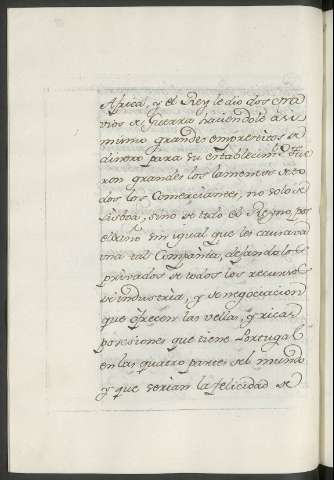 Africa, y el Rey le dio dos Na
vios de Guerra haciendole asi
mismo grandes emprestitos de
dinero para su establecimto. Fue
ron grandes los lamentos de to
dos los Comerciantes, no solo de
Lisboa, sino de todo el Reyno, por
el sin igual que les causava
una tal Compañia, dejandolos
privados de todos los recursos
de industria, y de negociacion
que ofrecen las vellas, y ricas
posesiones que tiene Portugal
en las quatro partes del mundo
y que serian la felicidad de